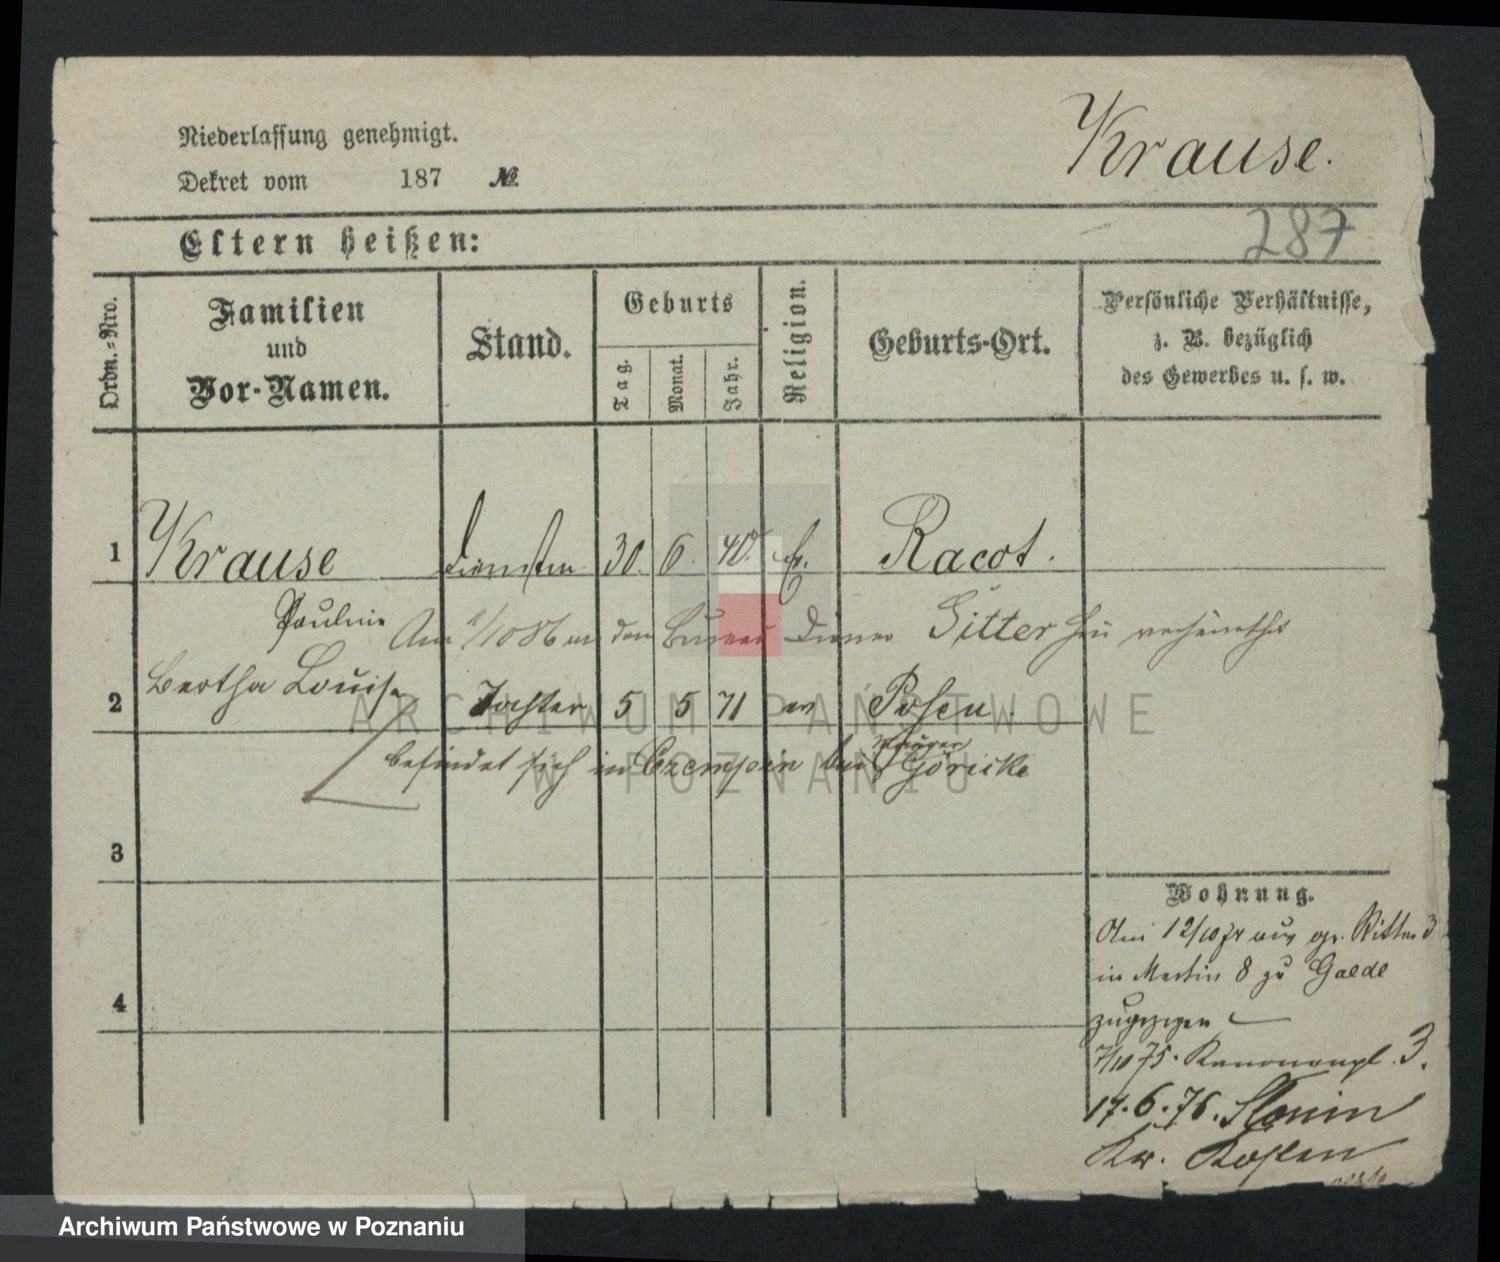 Niederlassung genehmigt.
Krause.
Dekret vom 187 №
Eltern heißen:
287
Ordn.=Nro.
Familien
und
Vor-Namen.
Stand.
Geburts
Tag.
Monat.
Jahr.
Religion.
Geburts-Ort.
Persönliche Verhältnisse,
z. B. bezüglich
des Gewerbes u. s. w.
1 Krause 30. 6. 40. Racot.
Pauline
Am 1/10 86 an den Bureau Diener Gitter verheirathet
2 Bertha Louise Tochter 5 5 71 ev Posen
befindet sich in Czempin bei Göricke
3
4
Wohnung.
Am 12/10 74 aus gr. Ritter 3
in Martin 8 zu Gaede
zugezogen
7/10 75. Kanonenpl. 3.
17.6.76.
Kr. Kosten
ARCHIWUM PAŃSTWOWE
W POZNANIU
Archiwum Państwowe w Poznaniu